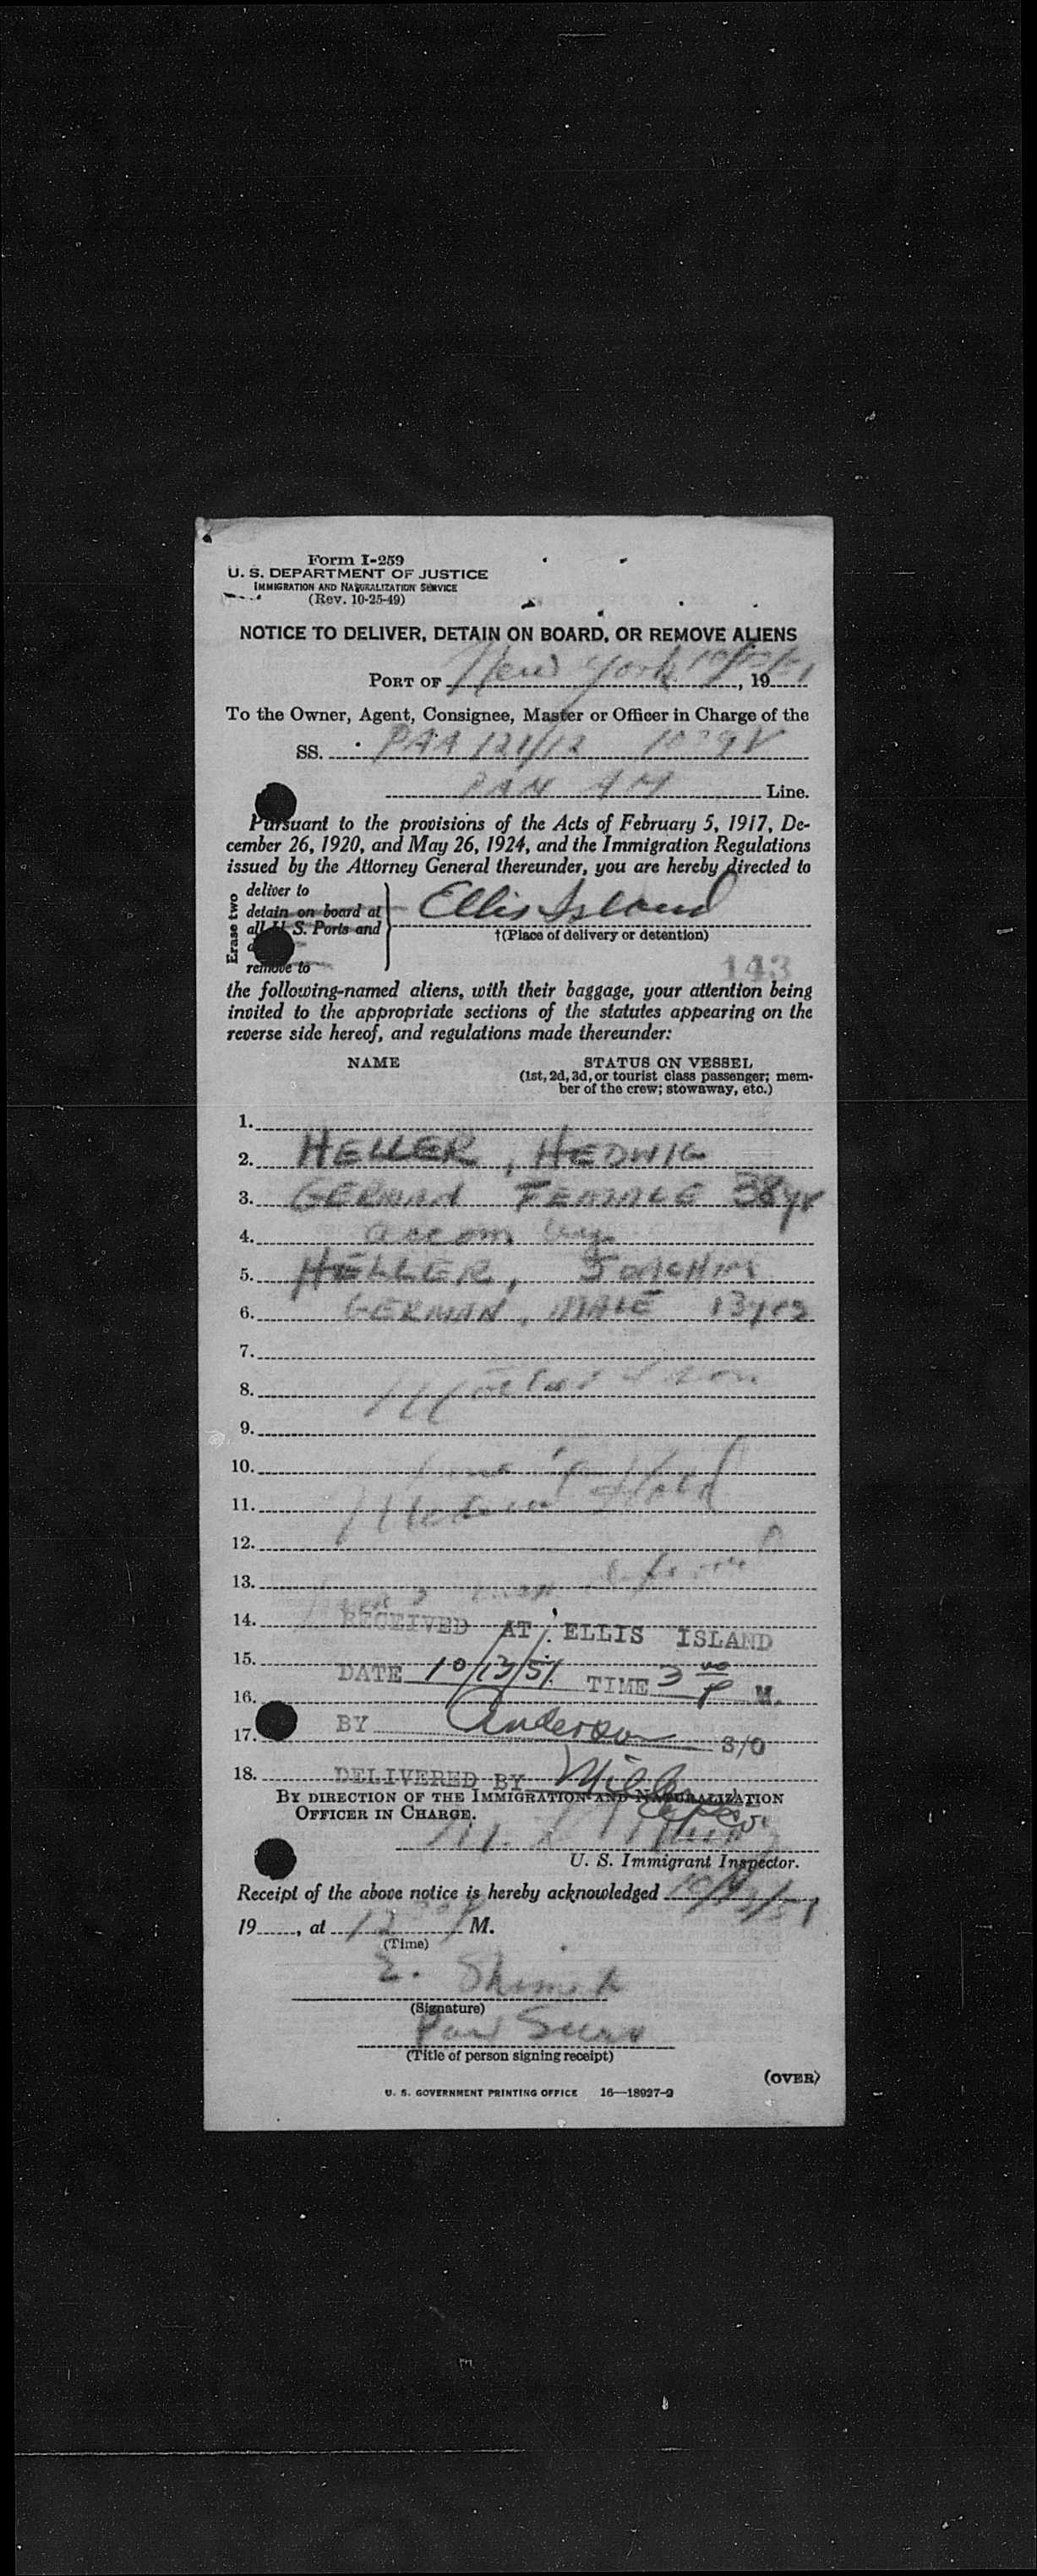 Form I-259
U. S. DEPARTMENT OF JUSTICE
IMMIGRATION AND NATURALIZATION SERVICE
(Rev. 10-25-49)
NOTICE TO DELIVER, DETAIN ON BOARD, OR REMOVE ALIENS
PORT OF New York 10/13/51, 19
To the Owner, Agent, Consignee, Master or Officer in Charge of the
SS. PAA 121/12
PAN AM Line.
Pursuant to the provisions of the Acts of February 5, 1917, De-
cember 26, 1920, and May 26, 1924, and the Immigration Regulations
issued by the Attorney General thereunder, you are hereby directed to
Erase two
deliver to
detain on board at
all U. S. Ports and
remove to
Ellis Island
†(Place of delivery or detention)
143
the following-named aliens, with their baggage, your attention being
invited to the appropriate sections of the statutes appearing on the
reverse side hereof, and regulations made thereunder:
NAME STATUS ON VESSEL
(1st, 2d, 3d, or tourist class passenger; mem-
ber of the crew; stowaway, etc.)
1.
2. HELLER, HEDWIG
3. GERMAN FEMALE 38 yr
4. accom by
5. HELLER, JOACHIM
6. GERMAN, MALE 13 yrs
7.
8.
9.
10.
11. Hold
12.
13.
14. RECEIVED AT ELLIS ISLAND
15. DATE 10/13/51 TIME 3 00 P M.
16.
17. BY Anderson S/O
18. DELIVERED BY
BY DIRECTION OF THE IMMIGRATION AND NATURALIZATION
OFFICER IN CHARGE.
U. S. Immigrant Inspector.
Receipt of the above notice is hereby acknowledged 10/13/51
19, at 12 M.
(Time)
E.
(Signature)
(Title of person signing receipt)
(OVER)
U. S. GOVERNMENT PRINTING OFFICE 16—18927-2